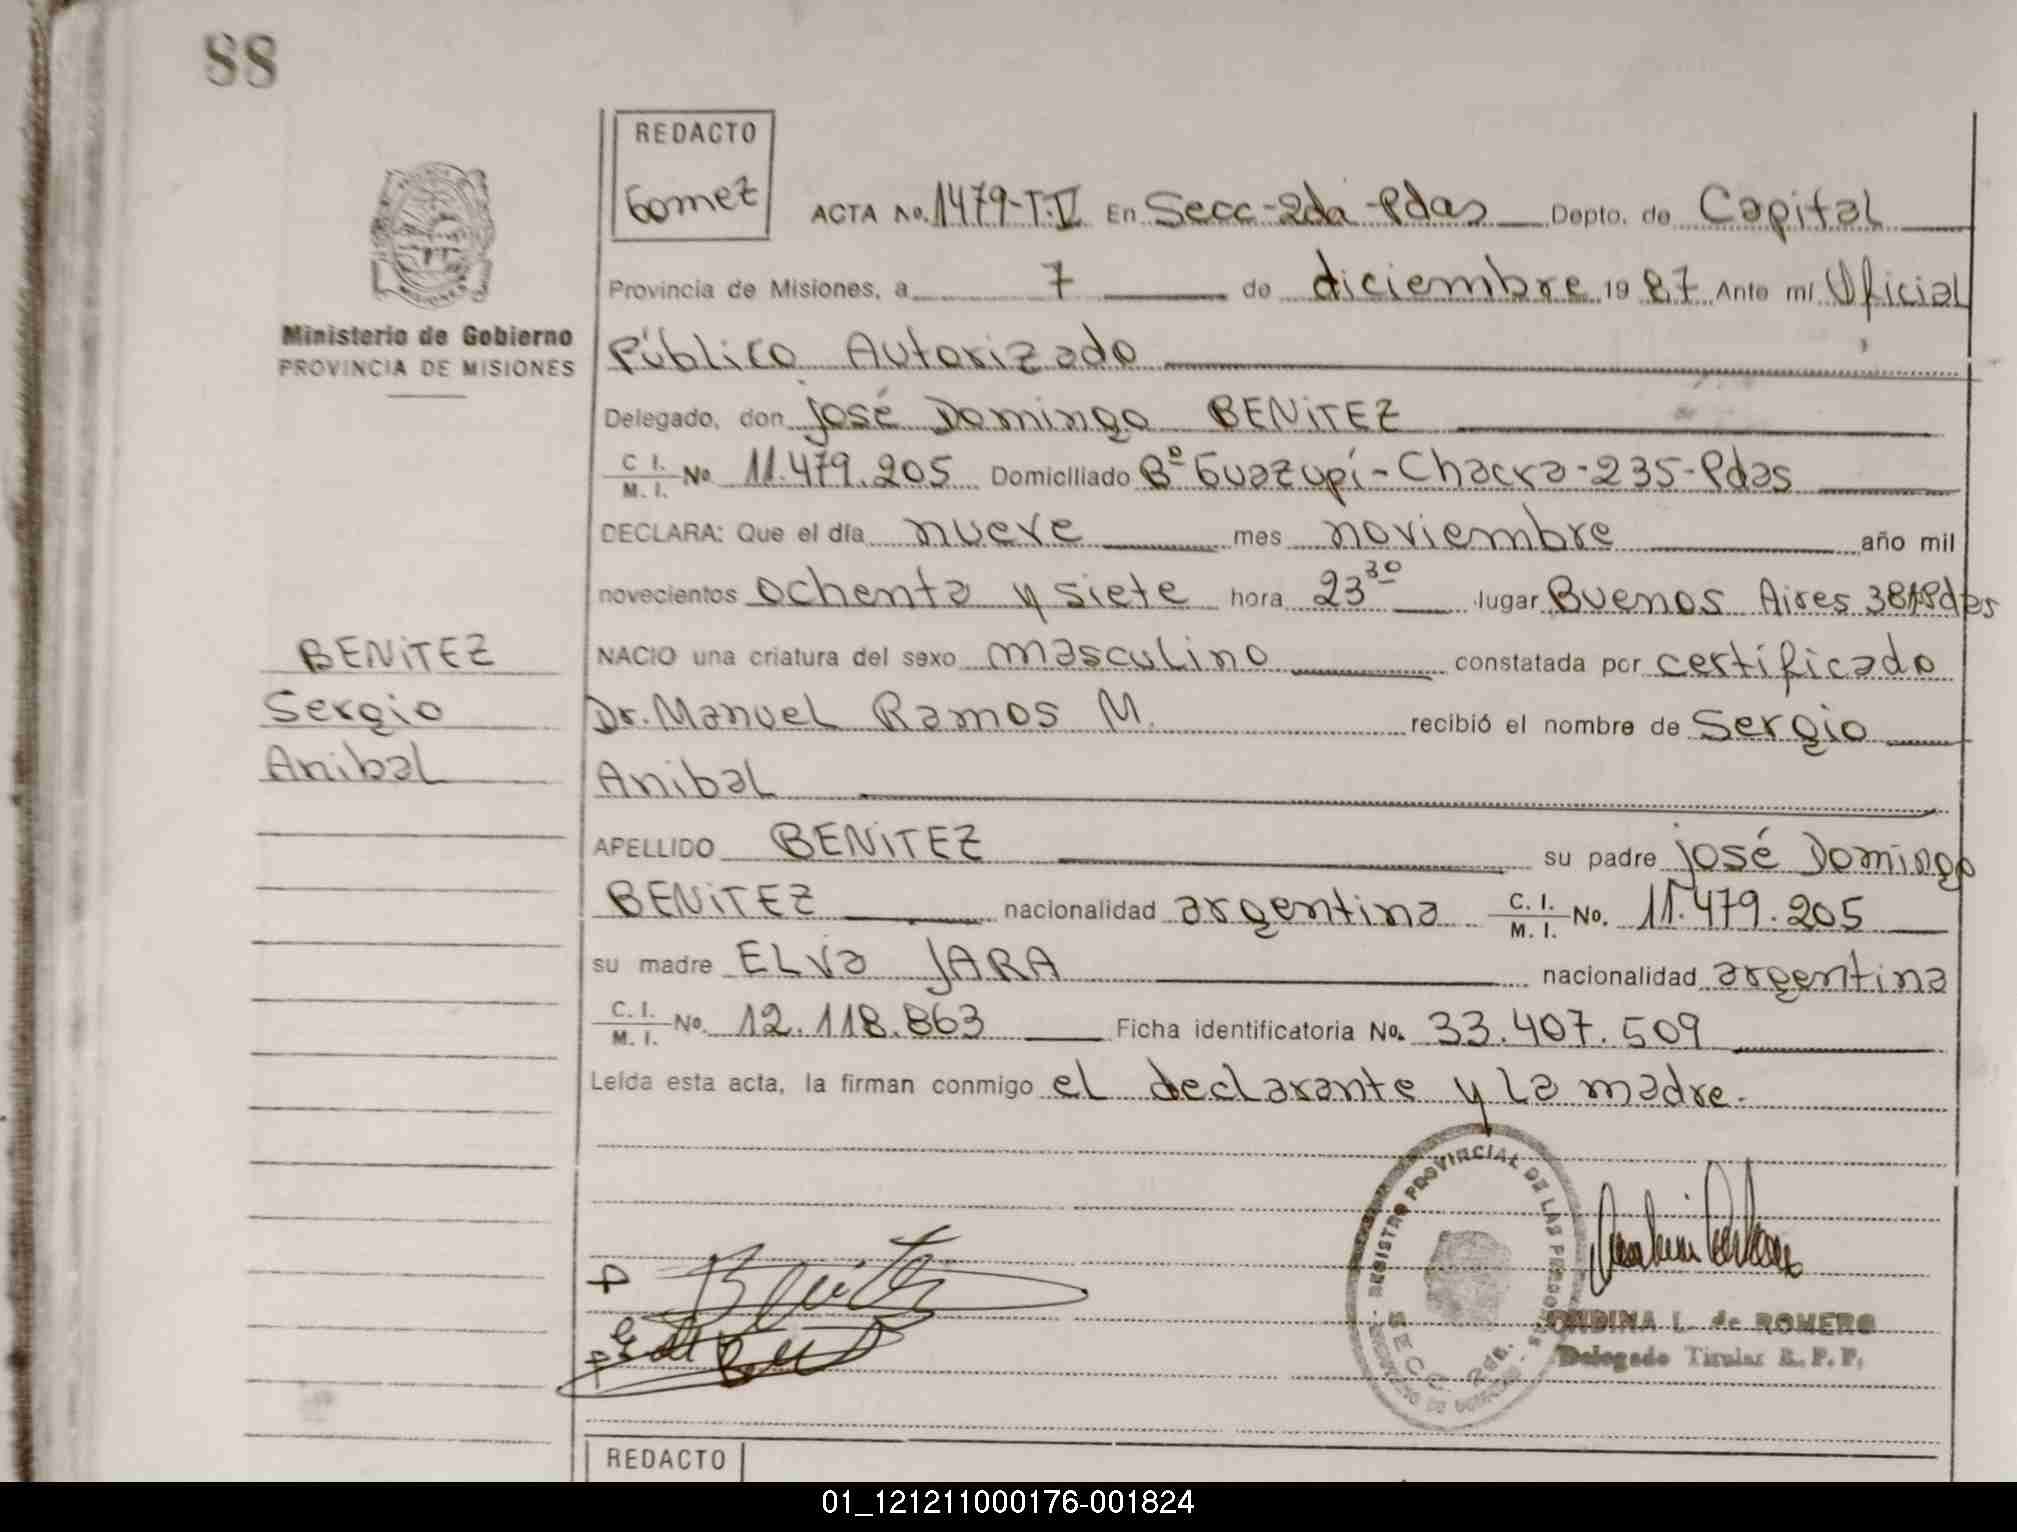 88
REDACTO
Gomez
ACTA No. 1479-T.V En Secc-2da-Pdas Depto. de Capital
Provincia de Misiones, a 7 de diciembre 1987 Ante mí Oficial
Ministerio de Gobierno
PROVINCIA DE MISIONES
Público Autorizado
Delegado, don José Domingo BENiTEZ
C. I. / M. I. No 11.479.205 Domiciliado Bº Guazupí-Chacra-235-Pdas
DECLARA: Que el día nueve mes noviembre año mil
novecientos ochenta y siete hora 23 30 lugar Buenos Aires Pdas
BENiTEZ
NACIO una criatura del sexo masculino constatada por certificado
Sergio
Dr. Manuel Ramos M. recibió el nombre de Sergio
Anibal
Anibal
APELLIDO BENiTEZ su padre José Domingo
BENiTEZ nacionalidad argentina C. I. / M. I. No. 11.479.205
su madre ELVa JARA nacionalidad argentina
C. I. / M. I. No. 12.118.863 Ficha identificatoria No. 33.407.509
Leída esta acta, la firman conmigo el declarante y la madre.
REGISTRO PROVINCIAL DE LAS PERSONAS
SECC. 2da.
ONDINA L. de ROMERO
Delegado Titular R. P. P.
REDACTO
01_121211000176-001824